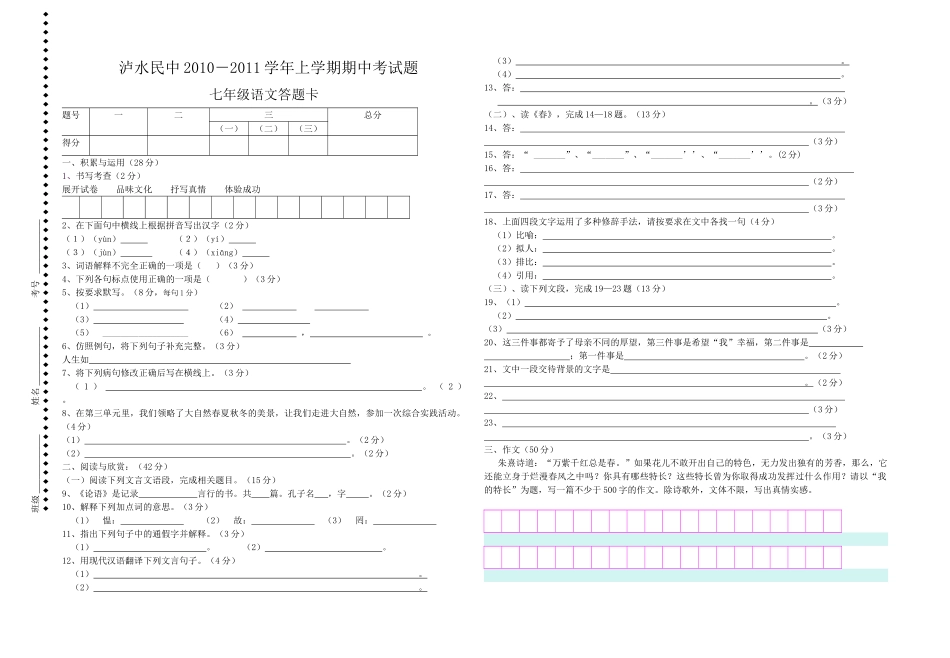 泸水民中 2010－2011 学年上学期期中考试题
七年级语文答题卡
题号 一 二 三 总分
（一） （二） （三）
得分
一、积累与运用（28 分）
1、书写考查（2 分）
展开试卷 品味文化 抒写真情 体验成功
2、在下面句中横线上根据拼音写出汉字（2 分）
（1）（yùn）______ （2）（yí）______
（3）（jùn）______ （4）（xiāng）______
3、词语解释不完全正确的一项是（ ）（3 分）
4、下列各句标点使用正确的一项是（ ）（3 分）
5、按要求默写。（8 分，每句 1 分）
（1）______ （2）______ ______
（3）______ （4）______
（5）______ （6）______，______。
6、仿照例句，将下列句子补充完整。（3 分）
人生如______
7、将下列病句修改正确后写在横线上。（3 分）
（1）______。（2）
。
8、在第三单元里，我们领略了大自然春夏秋冬的美景，让我们走进大自然，参加一次综合实践活动。
（4 分）
（1）______。（2 分）
（2）______。（2 分）
二、阅读与欣赏：（42 分）
（一）阅读下列文言文语段，完成相关题目。（15 分）
9、《论语》是记录______言行的书。共____篇。孔子名___，字_____。（2 分）
10、解释下列加点词的意思。（3 分）
（1） 愠：______ （2） 故：______ （3） 罔：______
11、指出下列句子中的通假字并解释。（3 分）
（1）______。 （2）______。
12、用现代汉语翻译下列文言句子。（4 分）
（1）______。
（2）______。
（3）______。
（4）______。
13、答：______
______。（3 分）
（二）、读《春》，完成 14—18 题。（13 分）
14、答：______
______（3 分）
15、答：“ _______”、“_______”、“_______’’、“_______’’。(2 分)
16、答：______
______（2 分）
17、答：______
______（3 分）
18、上面四段文字运用了多种修辞手法，请按要求在文中各找一句（4 分）
（1）比喻：______。
（2）拟人：______。
（3）排比：______。
（4）引用：______。
（三）、读下列文段，完成 19—23 题（13 分）
19、（1）______。
（2）______。
（3）______（3 分）
20、这三件事都寄予了母亲不同的厚望，第三件事是希望“我”幸福，第二件事是______
______；第一件事是______。（2 分）
21、文中一段交待背景的文字是______
______。（2 分）
22、______
______（3 分）
23、______
______。（3 分）
三、作文（50 分）
朱熹诗道：“万紫千红总是春。”如果花儿不敢开出自己的特色，无力发出独有的芳香，那么，它
还能立身于烂漫春风之中吗？你具有哪些特长？这些特长曾为你取得成功发挥过什么作用？请以“我
的特长”为题，写一篇不少于 500 字的作文。除诗歌外，文体不限，写出真情实感。
班级______ 姓名______ 考号______